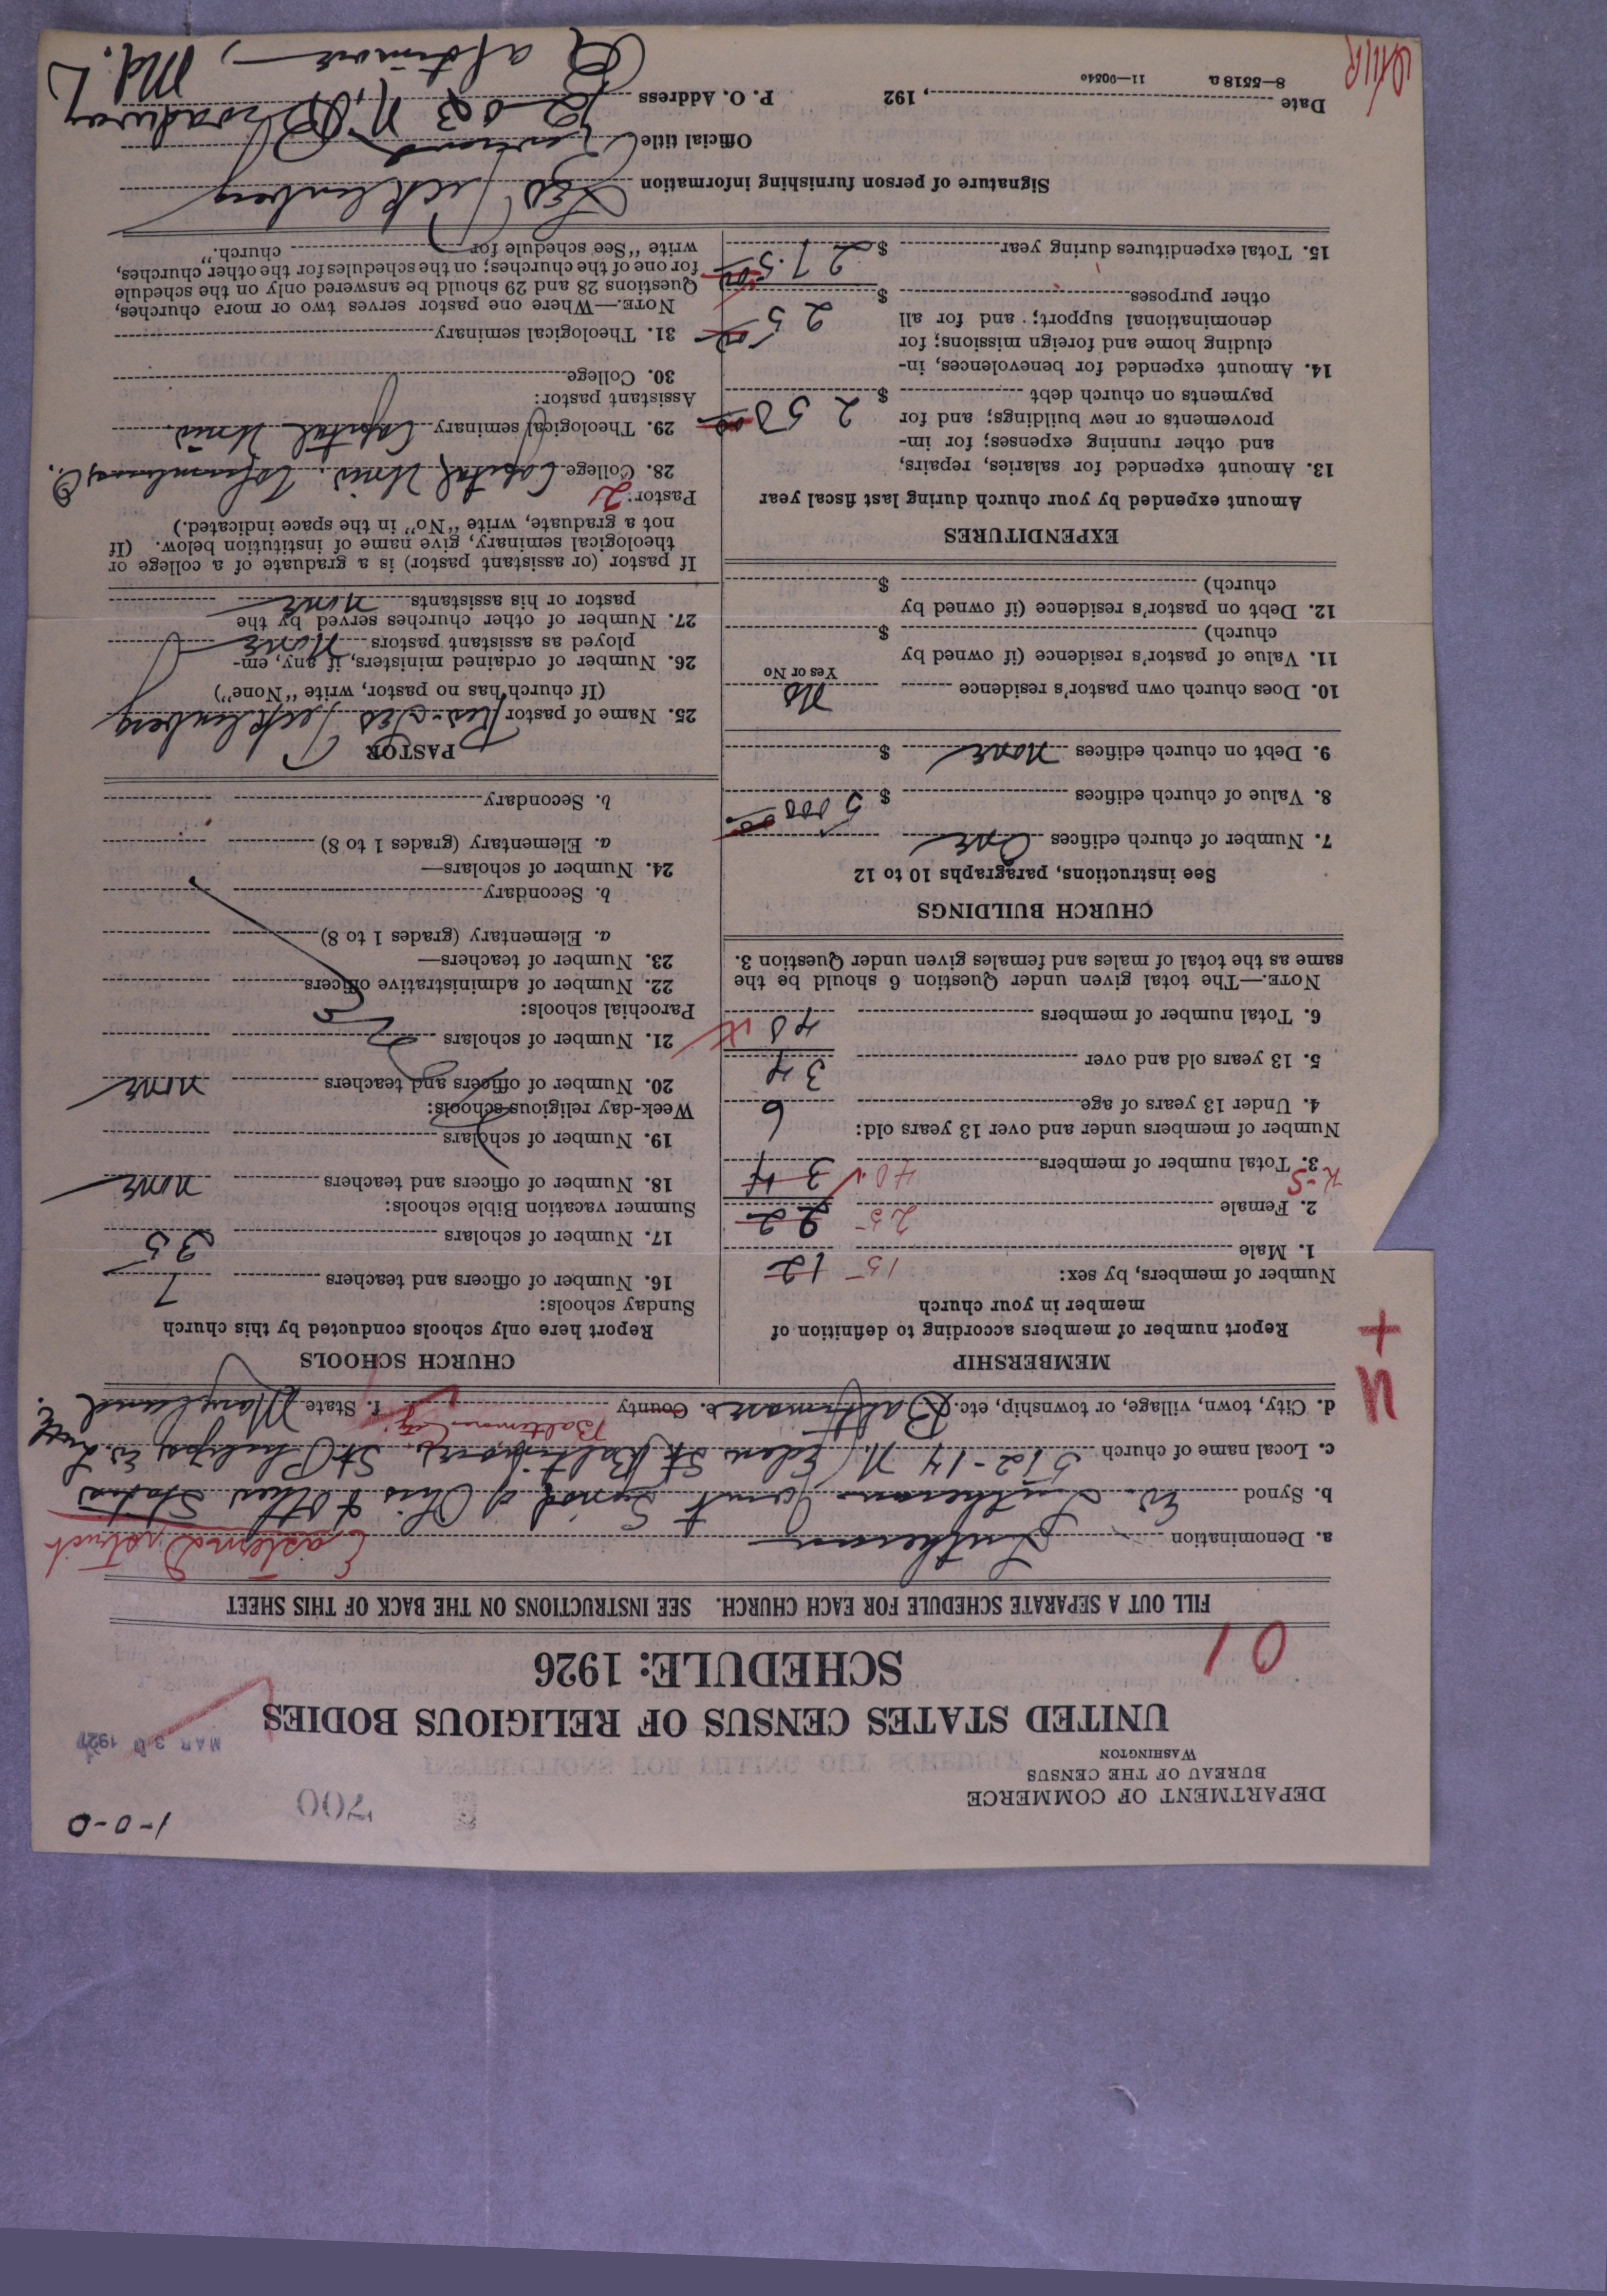 1-0-0
1700
MAR 30 1927
DEPARTMENT OF COMMERCE
BUREAU OF THE CENSUS
WASHINGTON
UNITED STATES CENSUS OF RELIGIOUS BODIES
SCHEDULE: 1926
01
FILL OUT A SEPARATE SCHEDULE FOR EACH CHURCH. SEE INSTRUCTIONS ON THE BACK OF THIS SHEET
a. Denomination Lutheran Eastern District
b. Synod Ev. Lutheran Joint Synod of Ohio & Other States
c. Local name of church 512-14 N. Eden St. Baltimore, St. Philips Ev. Luth. C.
d. City, town, village, or township, etc. Baltimore e. County Baltimore City f. State Maryland
U +
MEMBERSHIP
Report number of members according to definition of
member in your church
Number of members, by sex:
1. Male 15 12
2. Female 25 22
K-S
3. Total number of members 40 34
Number of members under and over 13 years old:
4. Under 13 years of age 6
5. 13 years old and over 34
6. Total number of members 40
NOTE.—The total given under Question 6 should be the
same as the total of males and females given under Question 3.
CHURCH BUILDINGS
See instructions, paragraphs 10 to 12
7. Number of church edifices One
8. Value of church edifices $ 5000 00
9. Debt on church edifices none $
10. Does church own pastor's residence No
Yes or No
11. Value of pastor's residence (if owned by
church) $
12. Debt on pastor's residence (if owned by
church) $
EXPENDITURES
Amount expended by your church during last fiscal year
13. Amount expended for salaries, repairs,
and other running expenses; for im-
provements or new buildings; and for
payments on church debt $ 250 00
14. Amount expended for benevolences, in-
cluding home and foreign missions; for
denominational support; and for all
other purposes $ 25 00
15. Total expenditures during year $ 275.00
CHURCH SCHOOLS
Report here only schools conducted by this church
Sunday schools:
16. Number of officers and teachers 7
17. Number of scholars 35
Summer vacation Bible schools:
18. Number of officers and teachers none
19. Number of scholars
Week-day religious schools:
20. Number of officers and teachers none
21. Number of scholars
Parochial schools:
22. Number of administrative officers
23. Number of teachers—
a. Elementary (grades 1 to 8)
b. Secondary
24. Number of scholars—
a. Elementary (grades 1 to 8)
b. Secondary
PASTOR
25. Name of pastor Rev. Geo Jecklenberg
(If church has no pastor, write "None")
26. Number of ordained ministers, if any, em-
ployed as assistant pastors None
27. Number of other churches served by the
pastor or his assistants none
If pastor (or assistant pastor) is a graduate of a college or
theological seminary, give name of institution below. (If
not a graduate, write "No" in the space indicated.)
Pastor: 2
28. College Capital Univ. Columbus, O.
29. Theological seminary Capital Univ.
Assistant pastor:
30. College
31. Theological seminary
NOTE.—Where one pastor serves two or more churches,
Questions 28 and 29 should be answered only on the schedule
for one of the churches; on the schedules for the other churches,
write "See schedule for church."
Signature of person furnishing information Geo Jecklenberg
Official title
Date , 192 P. O. Address 1203 N. Broadway
Baltimore, Md.
8—5518 a 11—9054o